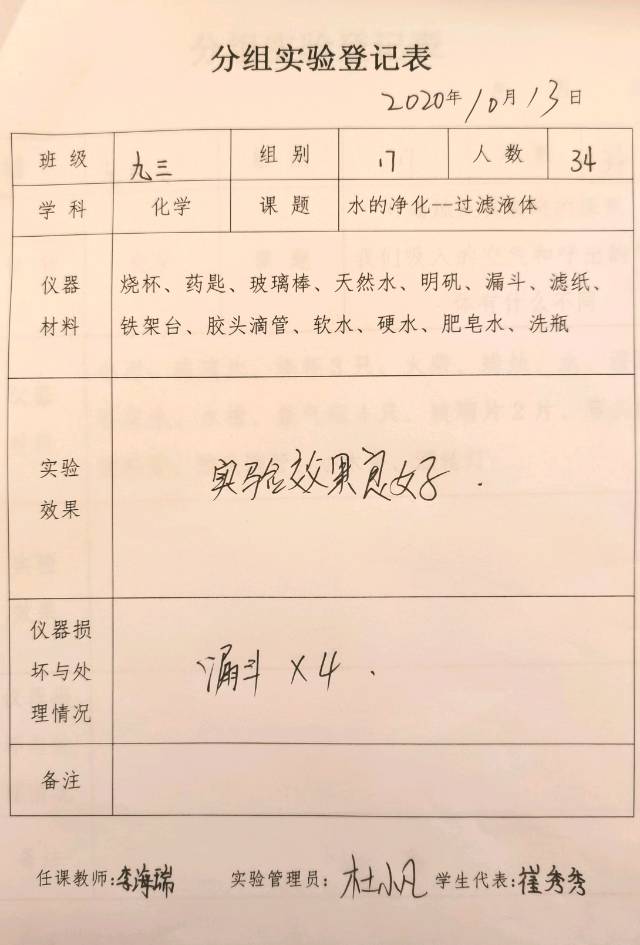 分组实验登记表
2020年10月13日
班级 九三 组别 17 人数 34
学科 化学 课题 水的净化--过滤液体
仪器材料 烧杯、药匙、玻璃棒、天然水、明矾、漏斗、滤纸、
铁架台、胶头滴管、软水、硬水、肥皂水、洗瓶
实验效果 实验效果良好.
仪器损坏与处理情况 漏斗×4.
备注
任课教师:李海瑞 实验管理员:杜小凡 学生代表:崔秀秀